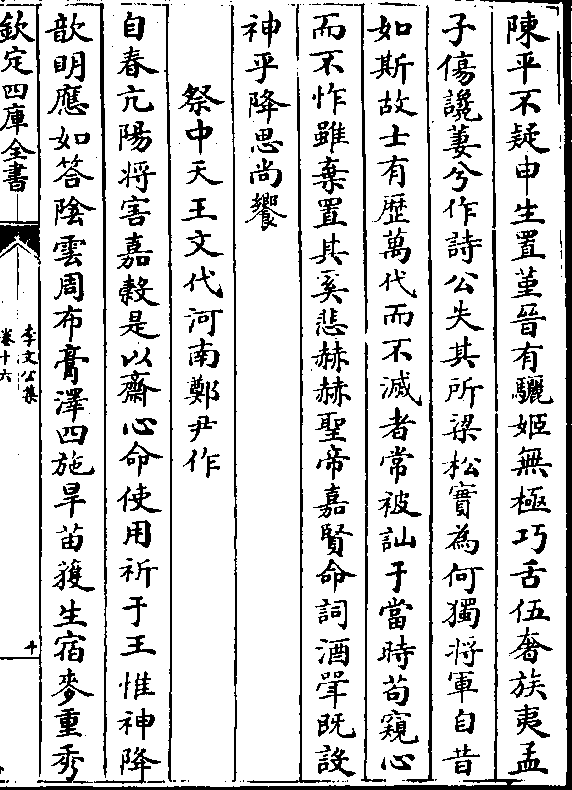 陳平不疑申生置堇晉有驪姬無極巧舌伍奢族夷孟
子傷讒萋兮作詩公失其所梁松實為何獨將軍自昔
如斯故士有歴萬代而不滅者常被訕于當時苟窺心
而不怍雖棄置其奚悲赫赫聖帝嘉賢命詞酒斝既設
神乎降思尚饗
祭中天王文代河南鄭尹作
自春亢陽將害嘉穀是以齋心命使用祈于王惟神降
歆明應如答陰雲周布膏澤四施旱苗䕶生宿麥重秀
欽定四庫全書
李文公集
卷十六
十